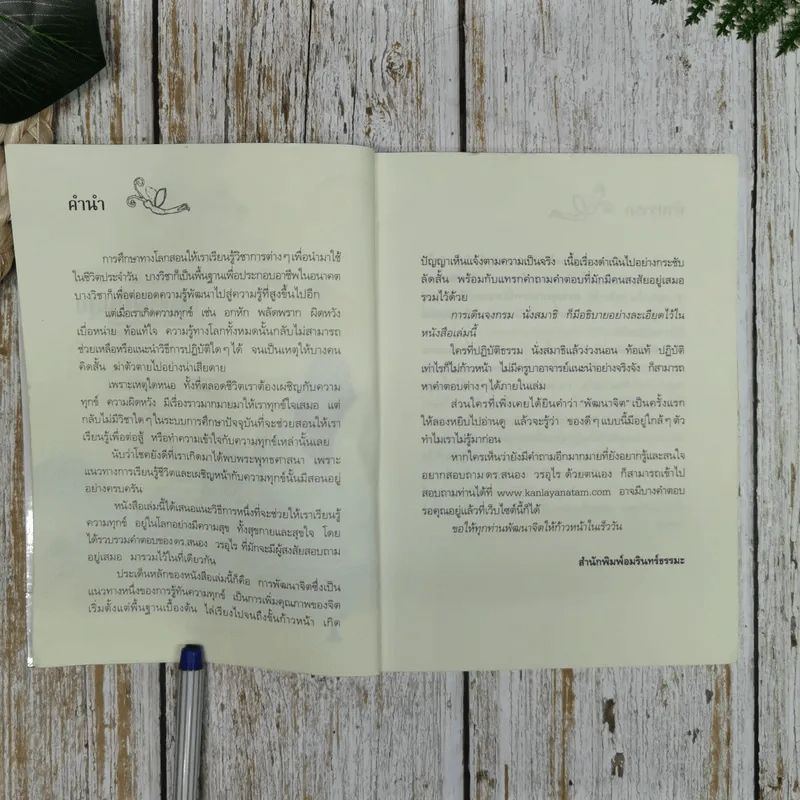 คำนำ
การศึกษาทางโลกสอนให้เราเรียนรู้วิชาการต่างๆ เพื่อนำมาใช้
ในชีวิตประจำวัน บางวิชาก็เป็นพื้นฐานเพื่อประกอบอาชีพในอนาคต
บางวิชาก็เพื่อต่อยอดความรู้พัฒนาไปสู่ความรู้ที่สูงขึ้นไปอีก
แต่เมื่อเราเกิดความทุกข์ เช่น อกหัก พลัดพราก ผิดหวัง
เบื่อหน่าย ท้อแท้ใจ ความรู้ทางโลกทั้งหมดนั้นกลับไม่สามารถ
ช่วยเหลือหรือแนะนำวิธีการปฏิบัติใดๆ ได้ จนเป็นเหตุให้บางคน
คิดสั้น ฆ่าตัวตายไปอย่างน่าเสียดาย
เพราะเหตุใดหนอ ทั้งที่ตลอดชีวิตเราต้องเผชิญกับความ
ทุกข์ ความผิดหวัง มีเรื่องราวมากมายมาให้เราทุกข์ใจเสมอ แต่
กลับไม่มีวิชาใดๆ ในระบบการศึกษาปัจจุบันที่จะช่วยสอนให้เรา
เรียนรู้เพื่อต่อสู้ หรือทำความเข้าใจกับความทุกข์เหล่านั้นเลย
นับว่าโชคยังดีที่เราเกิดมาได้พบพระพุทธศาสนา เพราะ
แนวทางการเรียนรู้ชีวิตและเผชิญหน้ากับความทุกข์นั้นมีสอนอยู่
อย่างครบครัน
หนังสือเล่มนี้ได้เสนอแนะวิธีการหนึ่งที่จะช่วยให้เราเรียนรู้
ความทุกข์ อยู่ในโลกอย่างมีความสุข ทั้งสุขกายและสุขใจ โดย
ได้รวบรวมคำตอบของ ดร.สนอง วรอุไร ที่มักจะมีผู้สงสัยสอบถาม
อยู่เสมอ มารวมไว้ในที่เดียวกัน
ประเด็นหลักของหนังสือเล่มนี้ก็คือ การพัฒนาจิตซึ่งเป็น
แนวทางหนึ่งของการรู้ทันความทุกข์ เป็นการเพิ่มคุณภาพของจิต
เริ่มตั้งแต่พื้นฐานเบื้องต้น ไล่เรียงไปจนถึงขั้นก้าวหน้า เกิด
ปัญญาเห็นแจ้งตามความเป็นจริง เนื้อเรื่องดำเนินไปอย่างกระชับ
ลัดสั้น พร้อมกับแทรกคำถามคำตอบที่มักมีคนสงสัยอยู่เสมอ
รวมไว้ด้วย
การเดินจงกรม นั่งสมาธิ ก็มีอธิบายอย่างละเอียดไว้ใน
หนังสือเล่มนี้
ใครที่ปฏิบัติธรรม นั่งสมาธิแล้วง่วงนอน ท้อแท้ ปฏิบัติ
เท่าไรก็ไม่ก้าวหน้า ไม่มีครูบาอาจารย์แนะนำอย่างจริงจัง ก็สามารถ
หาคำตอบต่างๆ ได้ภายในเล่ม
ส่วนใครที่เพิ่งเคยได้ยินคำว่า “พัฒนาจิต” เป็นครั้งแรก
ให้ลองหยิบไปอ่านดู แล้วจะรู้ว่า ของดีๆ แบบนี้มีอยู่ใกล้ๆ ตัว
ทำไมเราไม่รู้มาก่อน
หากใครเห็นว่ายังมีคำถามอีกมากมายที่ยังอยากรู้และสนใจ
อยากสอบถาม ดร.สนอง วรอุไร ด้วยตนเอง ก็สามารถเข้าไป
สอบถามท่านได้ที่ www.kanlayanatam.com อาจมีบางคำตอบ
รอคุณอยู่แล้วที่เว็บไซต์นี้ก็ได้
ขอให้ทุกท่านพัฒนาจิตให้ก้าวหน้าในเร็ววัน
สำนักพิมพ์อมรินทร์ธรรมะ